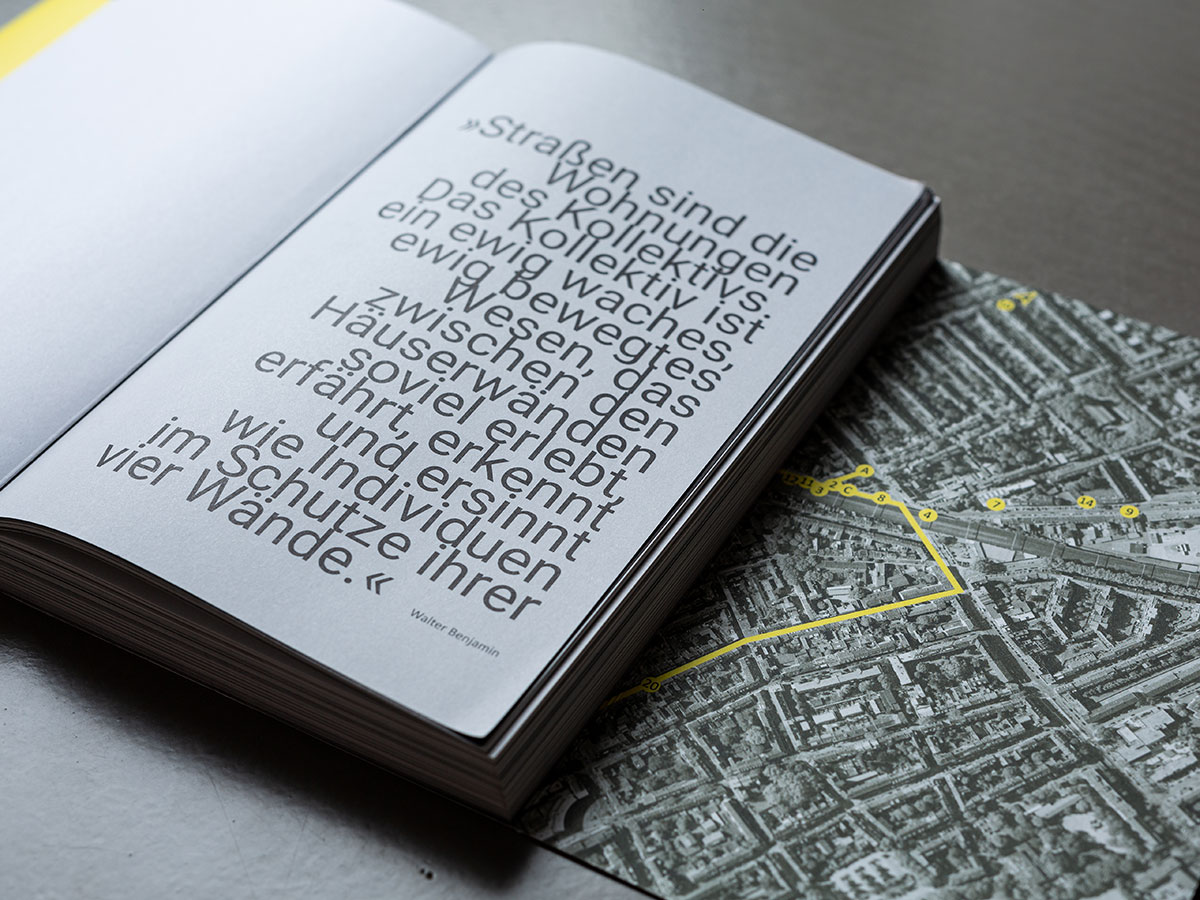 »Straßen sind die
Wohnungen
des Kollektivs.
Das Kollektiv ist
ein ewig waches,
ewig bewegtes
Wesen, das
zwischen den
Häuserwänden
soviel erlebt,
erfährt, erkennt
und ersinnt
wie Individuen
im Schutze ihrer
vier Wände.«
Walter Benjamin
A
12 11 3 2 C 8 4
14 9
20